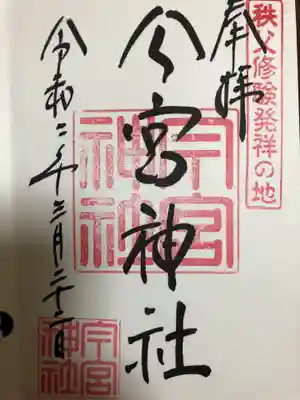 秩父修験発祥の地
奉拝
今宮神社
今宮
神社
令和二年三月二十二日
今宮
神社